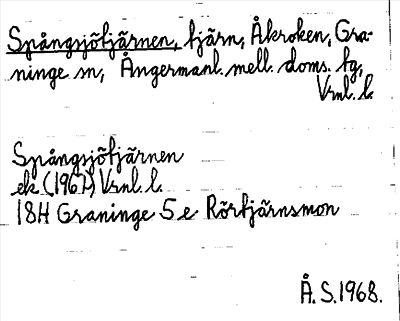 Spångsjötjärnen, tjärn, Åkroken, Gra-
ninge sn, Ångermanl. mell. doms. tg,
Vrnl. l.
Spångsjötjärnen
ek (1967) Vrnl. l.
18H Graninge 5 e Rörtjärnsmon
Å. S. 1968.